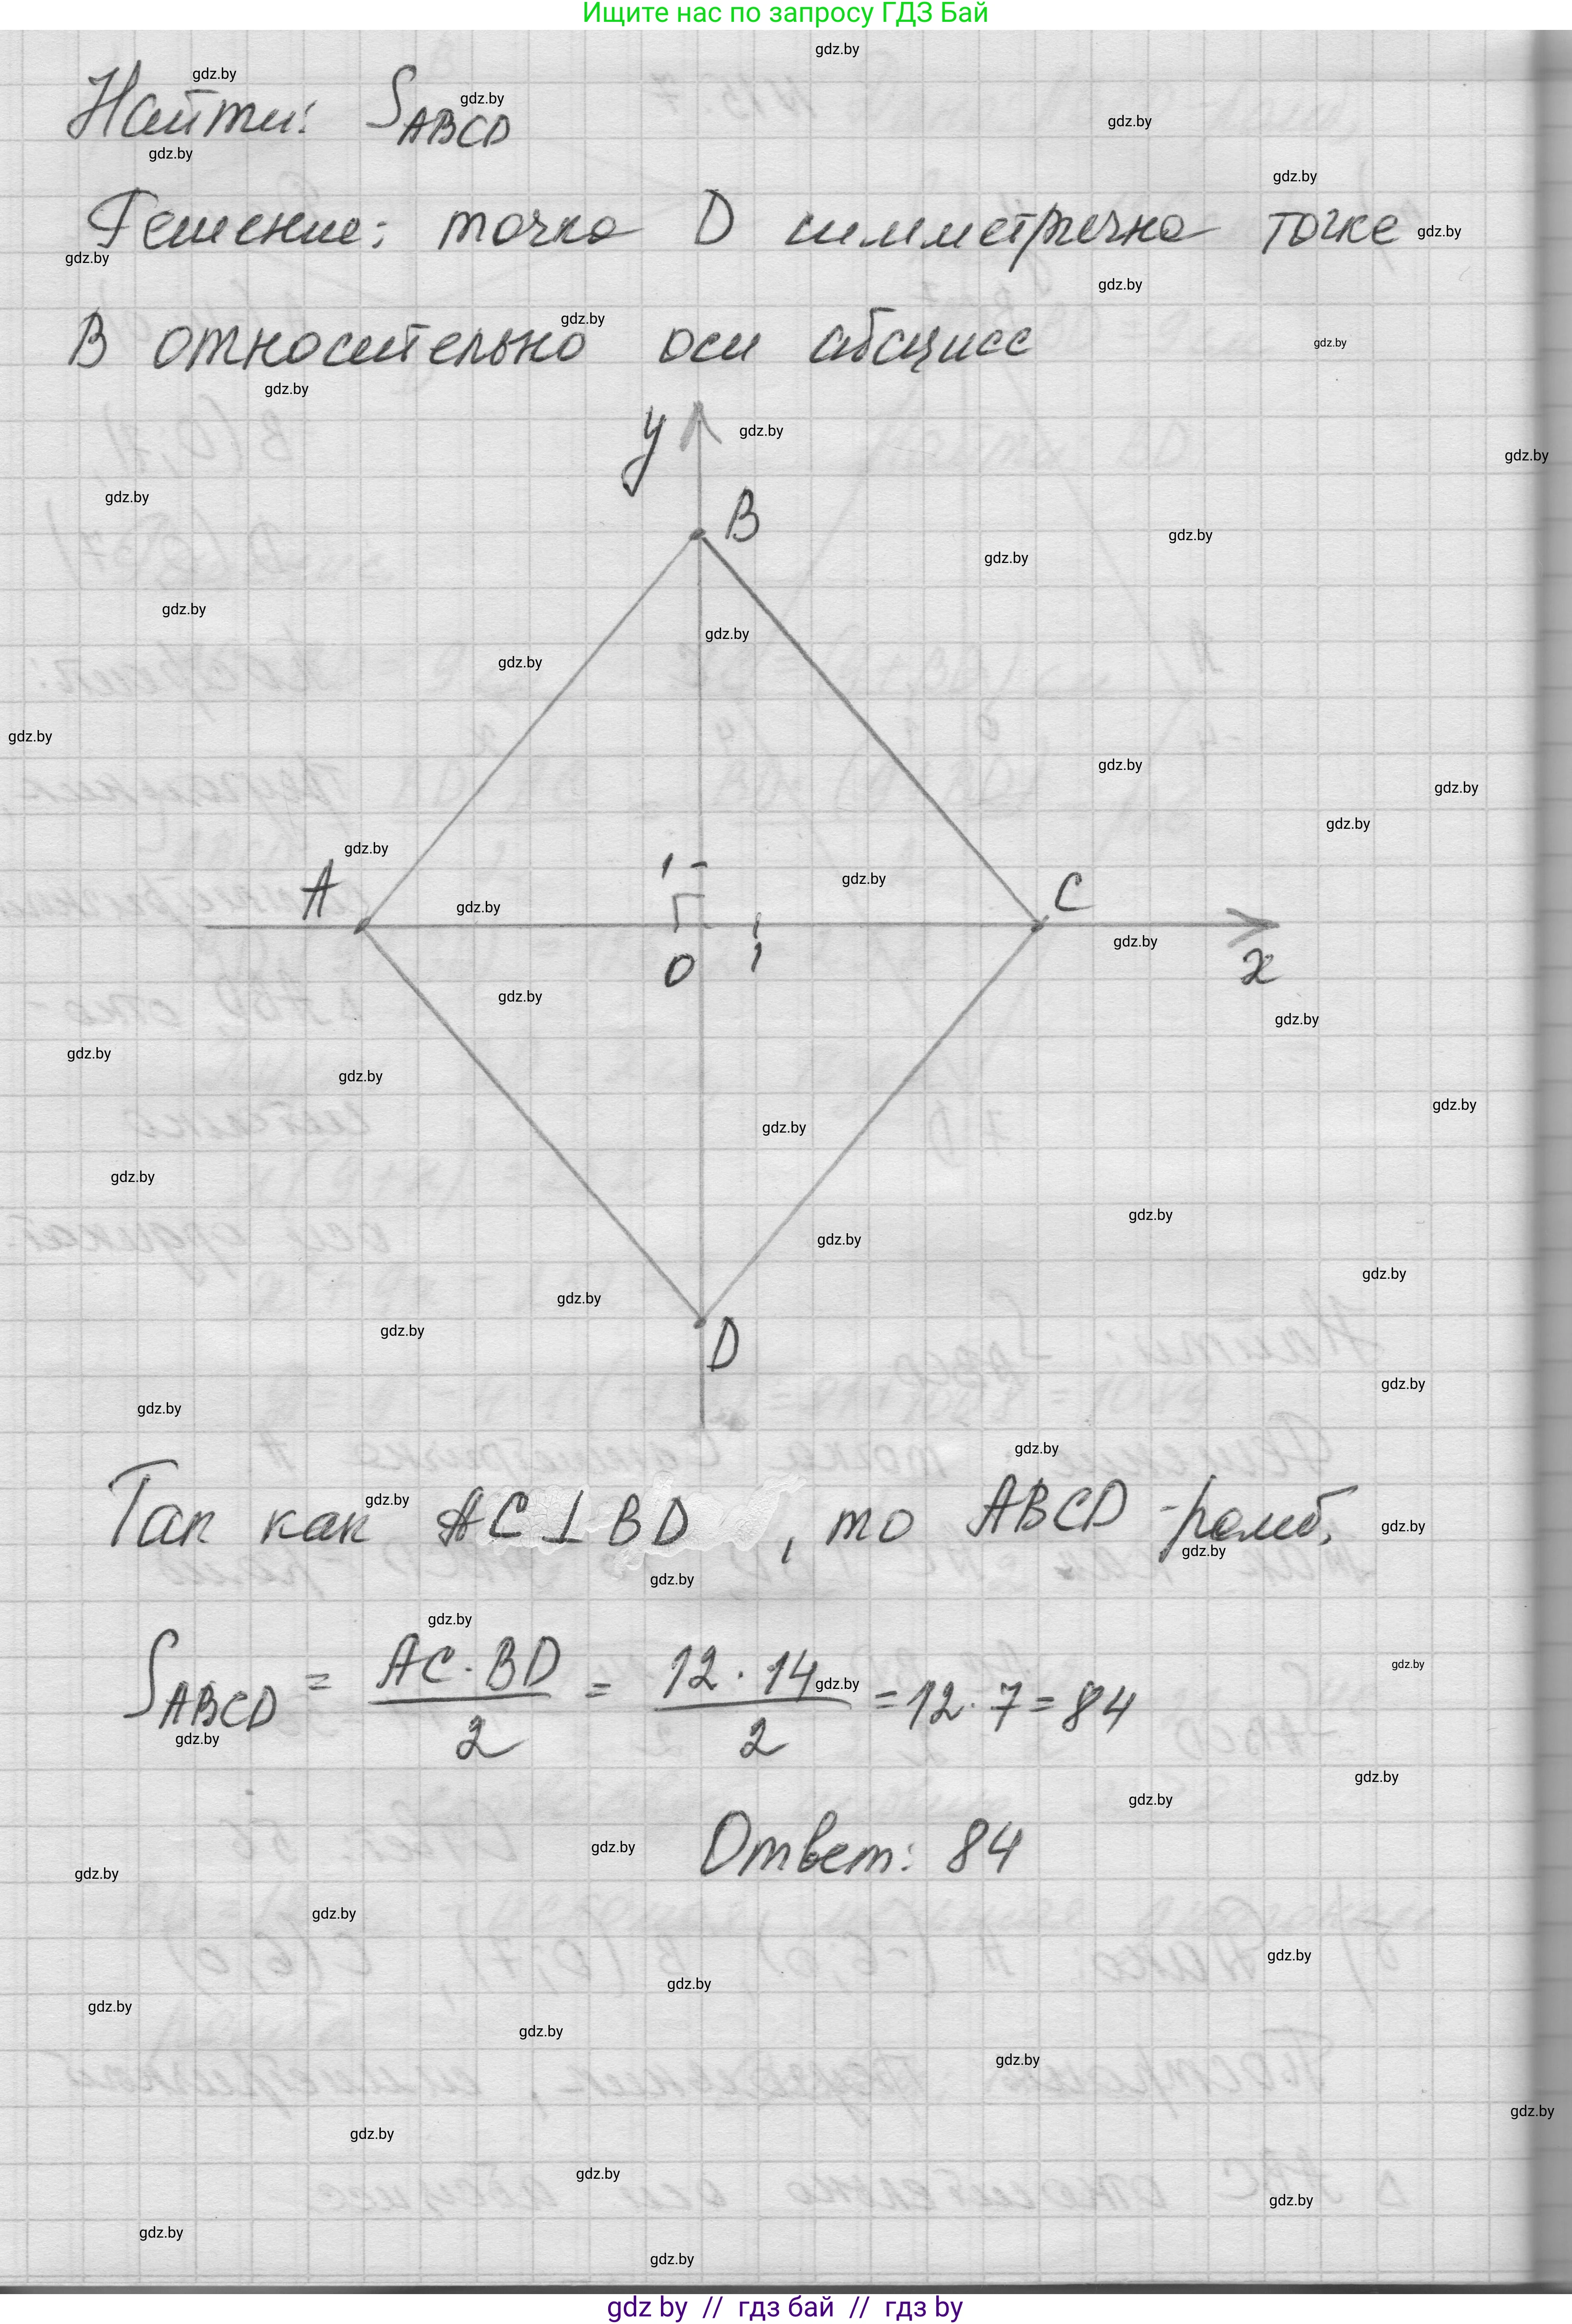 Ищите нас по запросу ГДЗ Бай
Найти: S ABCD
Решение: точка D симметрична точке
B относительно оси абсцисс
y
B
A
1
C
0
1
x
D
Так как AC⊥BD, то ABCD - ромб.
S ABCD = AC·BD / 2 = 12·14 / 2 = 12·7 = 84
Ответ: 84
gdz.by
gdz by // гдз бай // гдз by